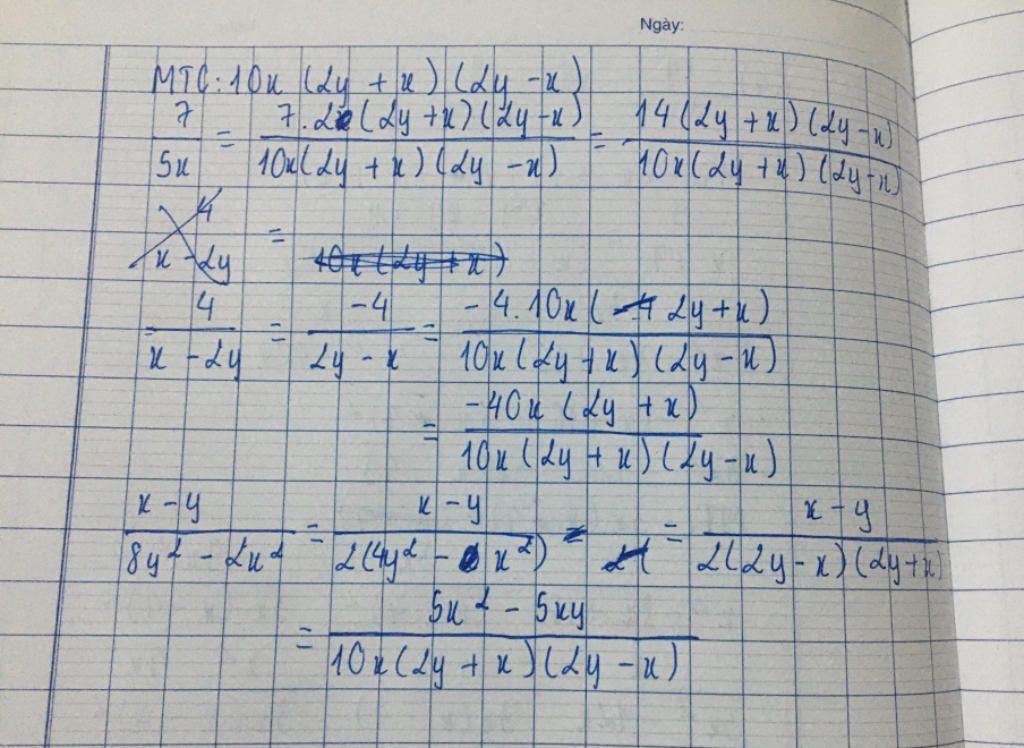 Ngày:
MTC: 10x (2y + x) (2y - x)
7/5x = 7.2(2y+x)(2y-x)/10x(2y + x) (2y - x) = 14(2y+x)(2y-x)/10x(2y+x)(2y-x)
4/x - 2y = 10x(2y+x)
4/x - 2y = -4/2y - x = -4.10x(-4 2y+x)/10x(2y+x)(2y-x)
= -40x(2y+x)/10x(2y+x)(2y-x)
x-y/8y² - 2x² = x-y/2(4y² - x²) = 2( = x-y/2(2y-x)(2y+x)
= 5x² - 5xy/10x(2y+x)(2y-x)